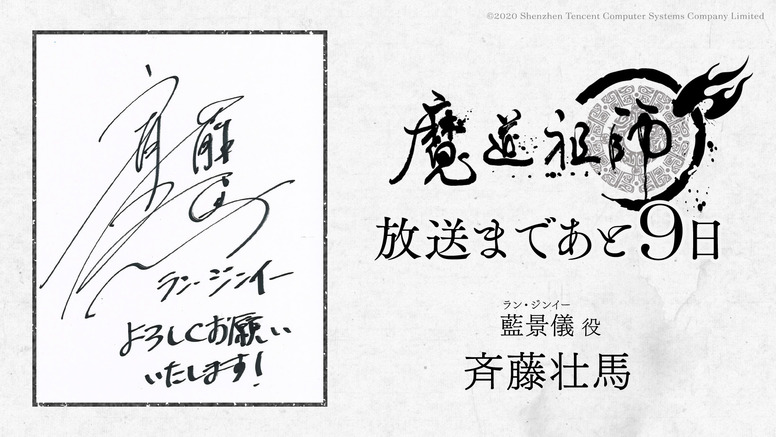 ©2020 Shenzhen Tencent Computer Systems Company Limited
斉藤壮馬
ラン・ジンイー
よろしくお願い
いたします!
魔道祖師
放送まであと9日
ラン・ジンイー
藍景儀 役
斉藤壮馬